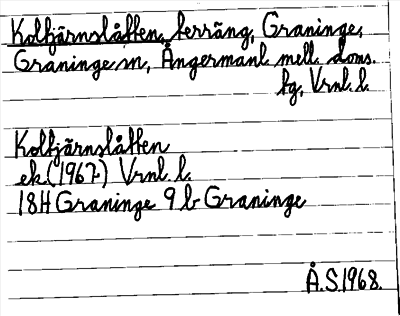 Koltjärnslåtten, terräng, Graninge,
Graninge sn, Ångermanl. mell. doms.
tg, Vrnl. l.
Koltjärnslåtten
ek. (1967) Vrnl. l.
18H Graninge 9 b Graninge
Å.S. 1968.